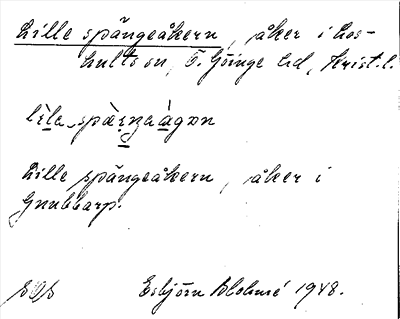 Lille spångeåkern, åker i Los-
hults sn, Ö. Göinge hd, Krist. l.
Lille spångeåkern, åker i
Gnubbarp.
Esbjörn 1948.